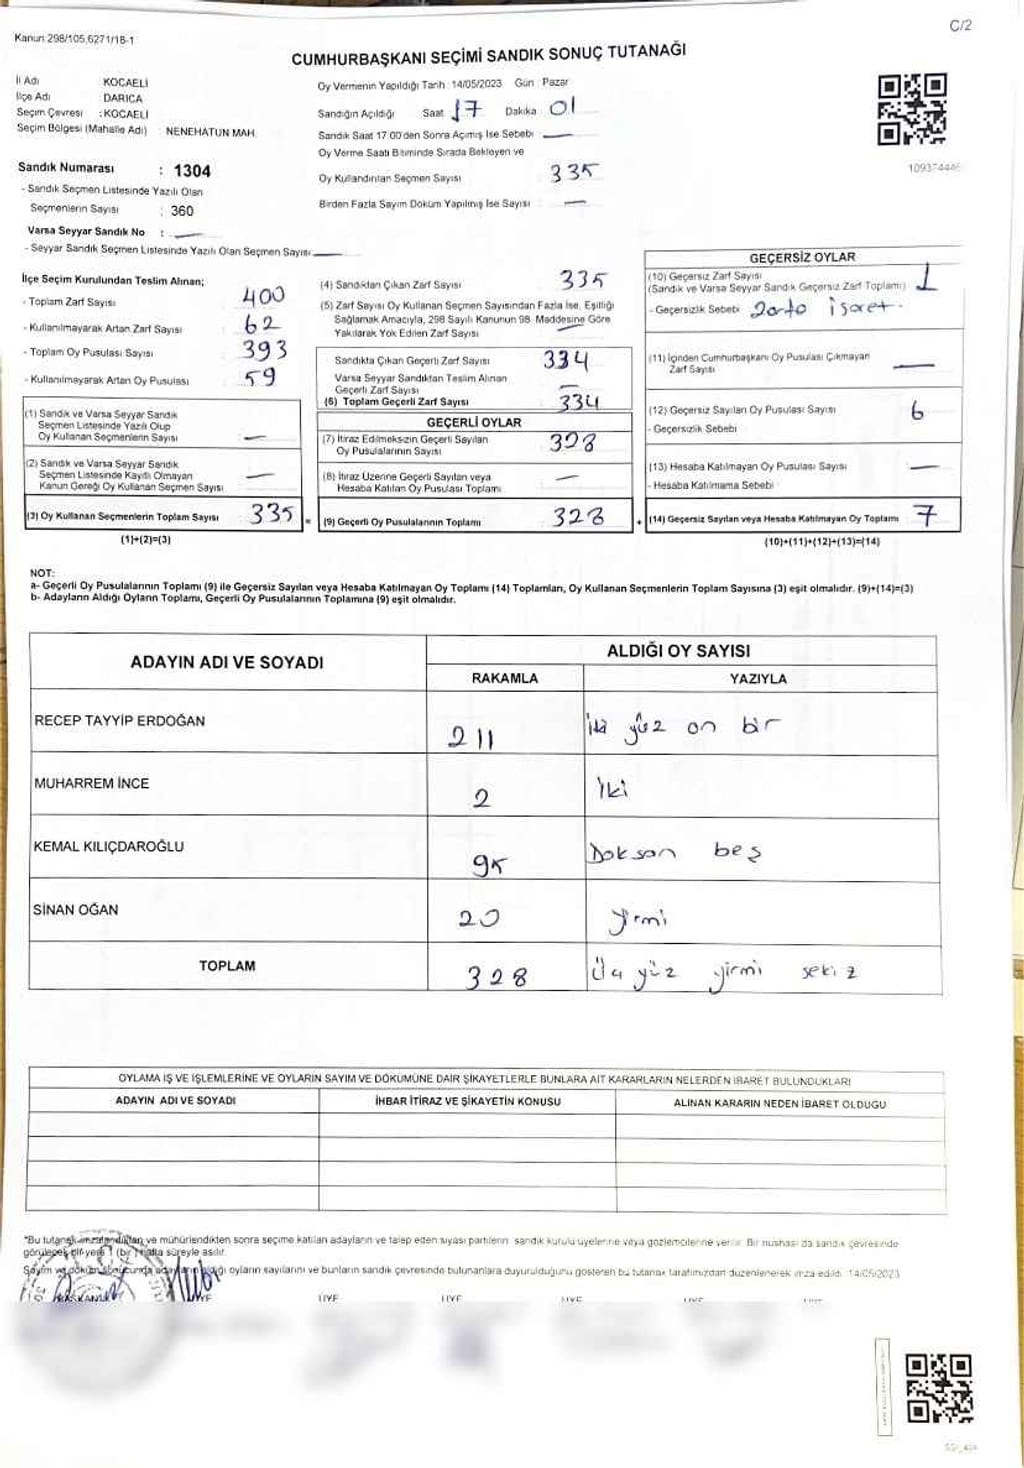 C/2
Kanun 298/105,6271/18-1
CUMHURBAŞKANI SEÇİMİ SANDIK SONUÇ TUTANAĞI
İl Adı KOCAELİ
İlçe Adı DARICA
Seçim Çevresi : KOCAELİ
Seçim Bölgesi (Mahalle Adı) : NENEHATUN MAH.
Sandık Numarası : 1304
- Sandık Seçmen Listesinde Yazılı Olan
Seçmenlerin Sayısı : 360
Varsa Seyyar Sandık No : —
- Seyyar Sandık Seçmen Listesinde Yazılı Olan Seçmen Sayısı —
Oy Vermenin Yapıldığı Tarih :14/05/2023 Gün : Pazar
Sandığın Açıldığı Saat 17 Dakika 01
Sandık Saat 17.00'den Sonra Açımış İse Sebebi —
Oy Verme Saati Bitiminde Sırada Bekleyen ve
Oy Kullandırılan Seçmen Sayısı 335
Birden Fazla Sayım Döküm Yapılmış İse Sayısı : —
109374446
İlçe Seçim Kurulundan Teslim Alınan;
- Toplam Zarf Sayısı 400
- Kullanılmayarak Artan Zarf Sayısı 62
- Toplam Oy Pusulası Sayısı 393
- Kullanılmayarak Artan Oy Pusulası 59
(1) Sandık ve Varsa Seyyar Sandık
Seçmen Listesinde Yazılı Olup
Oy Kullanan Seçmenlerin Sayısı —
(2) Sandık ve Varsa Seyyar Sandık
Seçmen Listesinde Kayıtlı Olmayan
Kanun Gereği Oy Kullanan Seçmen Sayısı —
(3) Oy Kullanan Seçmenlerin Toplam Sayısı 335 =
(1)+(2)=(3)
(4) Sandıktan Çıkan Zarf Sayısı 335
(5) Zarf Sayısı Oy Kullanan Seçmen Sayısından Fazla İse, Eşitliği
Sağlamak Amacıyla, 298 Sayılı Kanunun 98. Maddesine Göre
Yakılarak Yok Edilen Zarf Sayısı —
Sandıkta Çıkan Geçerli Zarf Sayısı 334
Varsa Seyyar Sandıktan Teslim Alınan
Geçerli Zarf Sayısı —
(6) Toplam Geçerli Zarf Sayısı 334
GEÇERLİ OYLAR
(7) İtiraz Edilmeksizin Geçerli Sayılan
Oy Pusulalarının Sayısı 328
(8) İtiraz Üzerine Geçerli Sayılan veya
Hesaba Katılan Oy Pusulası Toplamı —
(9) Geçerli Oy Pusulalarının Toplamı 328 +
GEÇERSİZ OYLAR
(10) Geçersiz Zarf Sayısı 1
(Sandık ve Varsa Seyyar Sandık Geçersiz Zarf Toplamı)
- Geçersizlik Sebebi işaret.
(11) İçinden Cumhurbaşkanı Oy Pusulası Çıkmayan
Zarf Sayısı —
(12) Geçersiz Sayılan Oy Pusulası Sayısı 6
- Geçersizlik Sebebi
(13) Hesaba Katılmayan Oy Pusulası Sayısı —
- Hesaba Katılmama Sebebi :
(14) Geçersiz Sayılan veya Hesaba Katılmayan Oy Toplamı 7
(10)+(11)+(12)+(13)=(14)
NOT:
a- Geçerli Oy Pusulalarının Toplamı (9) ile Geçersiz Sayılan veya Hesaba Katılmayan Oy Toplamı (14) Toplamları, Oy Kullanan Seçmenlerin Toplam Sayısına (3) eşit olmalıdır. (9)+(14)=(3)
b- Adayların Aldığı Oyların Toplamı, Geçerli Oy Pusulalarının Toplamına (9) eşit olmalıdır.
ADAYIN ADI VE SOYADI ALDIĞI OY SAYISI
RAKAMLA YAZIYLA
RECEP TAYYİP ERDOĞAN 211 iki yüz on bir
MUHARREM İNCE 2 iki
KEMAL KILIÇDAROĞLU 95 Doksan beş
SİNAN OĞAN 20 yirmi
TOPLAM 328 Üç yüz yirmi sekiz
OYLAMA İŞ VE İŞLEMLERİNE VE OYLARIN SAYIM VE DÖKÜMÜNE DAİR ŞİKAYETLERLE BUNLARA AİT KARARLARIN NELERDEN İBARET BULUNDUKLARI
ADAYIN ADI VE SOYADI İHBAR İTİRAZ VE ŞİKAYETİN KONUSU ALINAN KARARIN NEDEN İBARET OLDUĞU
*Bu tutanak imzalandıktan ve mühürlendikten sonra seçime katılan adayların ve talep eden siyasi partilerin sandık kurulu üyelerine veya gözlemcilerine verilir. Bir nüshası da sandık çevresinde
görülecek bir yere 1 (bir) hafta süreyle asılır.
Sayım ve döküm sonucunda adayların aldığı oyların sayılarını ve bunların sandık çevresinde bulunanlara duyurulduğunu gösteren bu tutanak tarafımızdan düzenlenerek imza edildi. 14/05/2023
BAŞKAN ÜYE ÜYE ÜYE ÜYE ÜYE